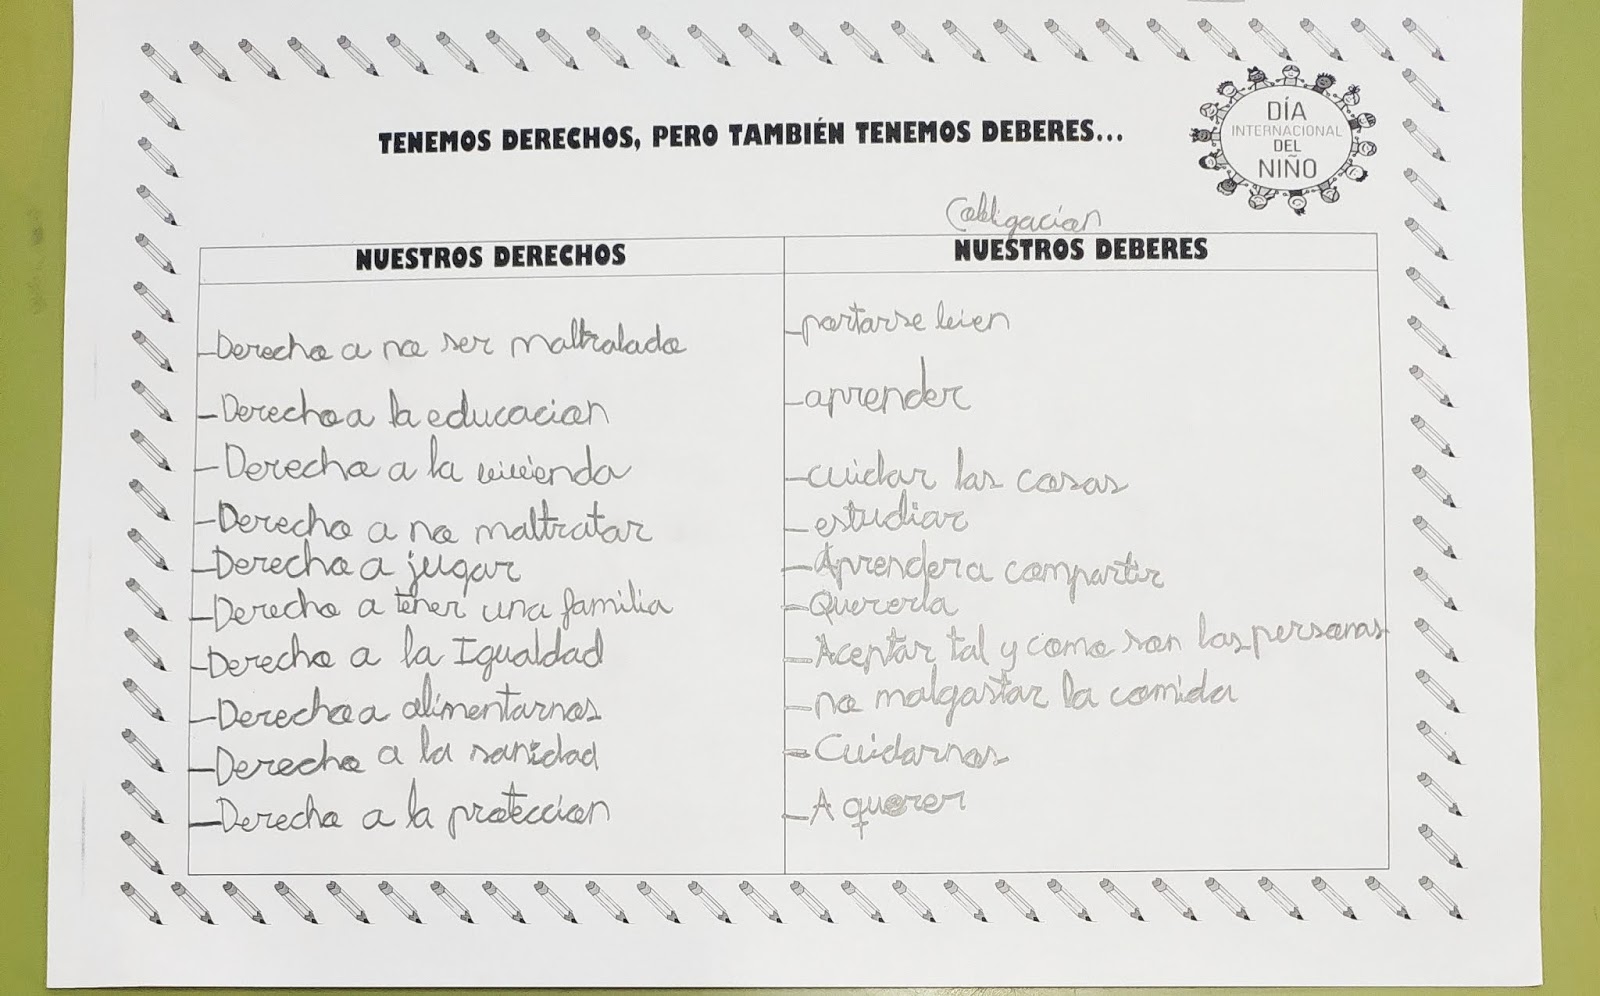 TENEMOS DERECHOS, PERO TAMBIÉN TENEMOS DEBERES...
DÍA
INTERNACIONAL
DEL
NIÑO
(obligacion
NUESTROS DERECHOS
-Derecho a no ser maltralado
-Derecho a la educacion
-Derecho a la vivienda
-Derecho a no maltratar
-Derecho a jugar
-Derecho a tener una familia
-Derecho a la Igualdad
-Derecho a alimentarnos
-Derecho a la sanidad
-Derecho a la proteccion
NUESTROS DEBERES
-portarse bien
-aprender
-cuidar las cosas
-estudiar
-Aprender a compartir
-Quererla
-Aceptar tal y como son las personas
-no malgastar la comida
-Cuidarnos
-A querer